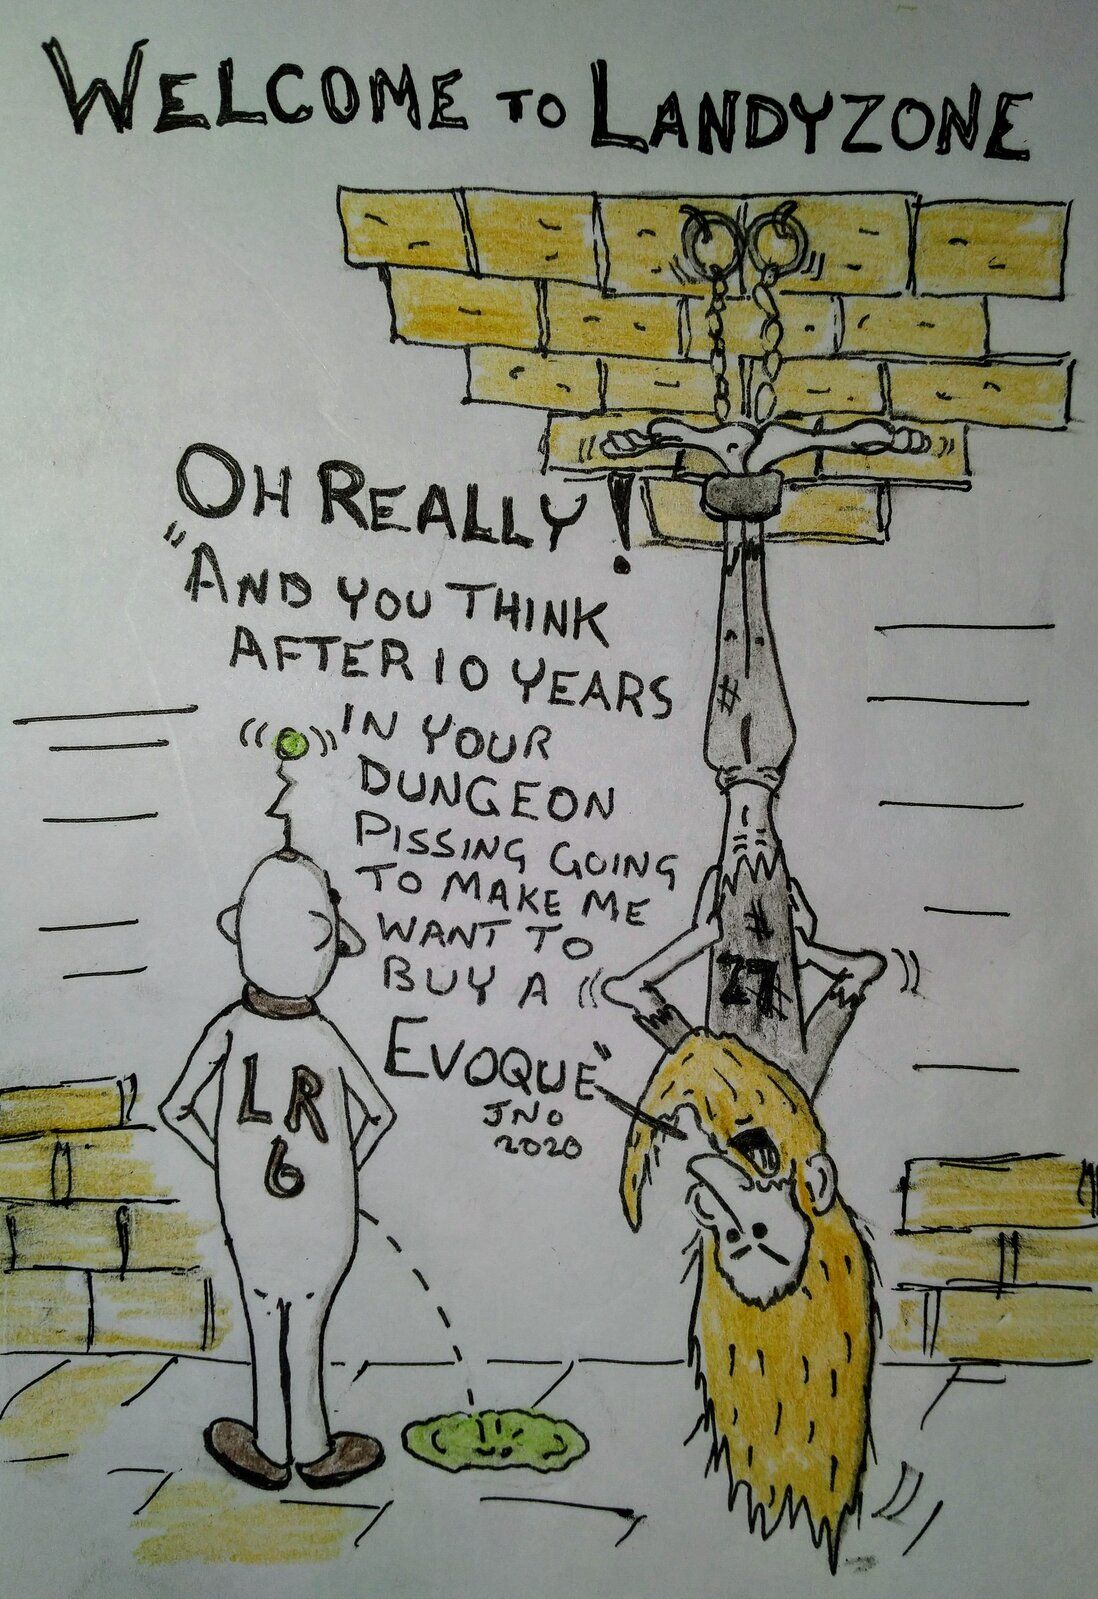 WELCOME TO LANDYZONE
OH REALLY!
"AND YOU THINK
AFTER 10 YEARS
IN YOUR
DUNGEON
PISSING GOING
TO MAKE ME
WANT TO
BUY A
EVOQUE"
JNO
2020
LR
6
27